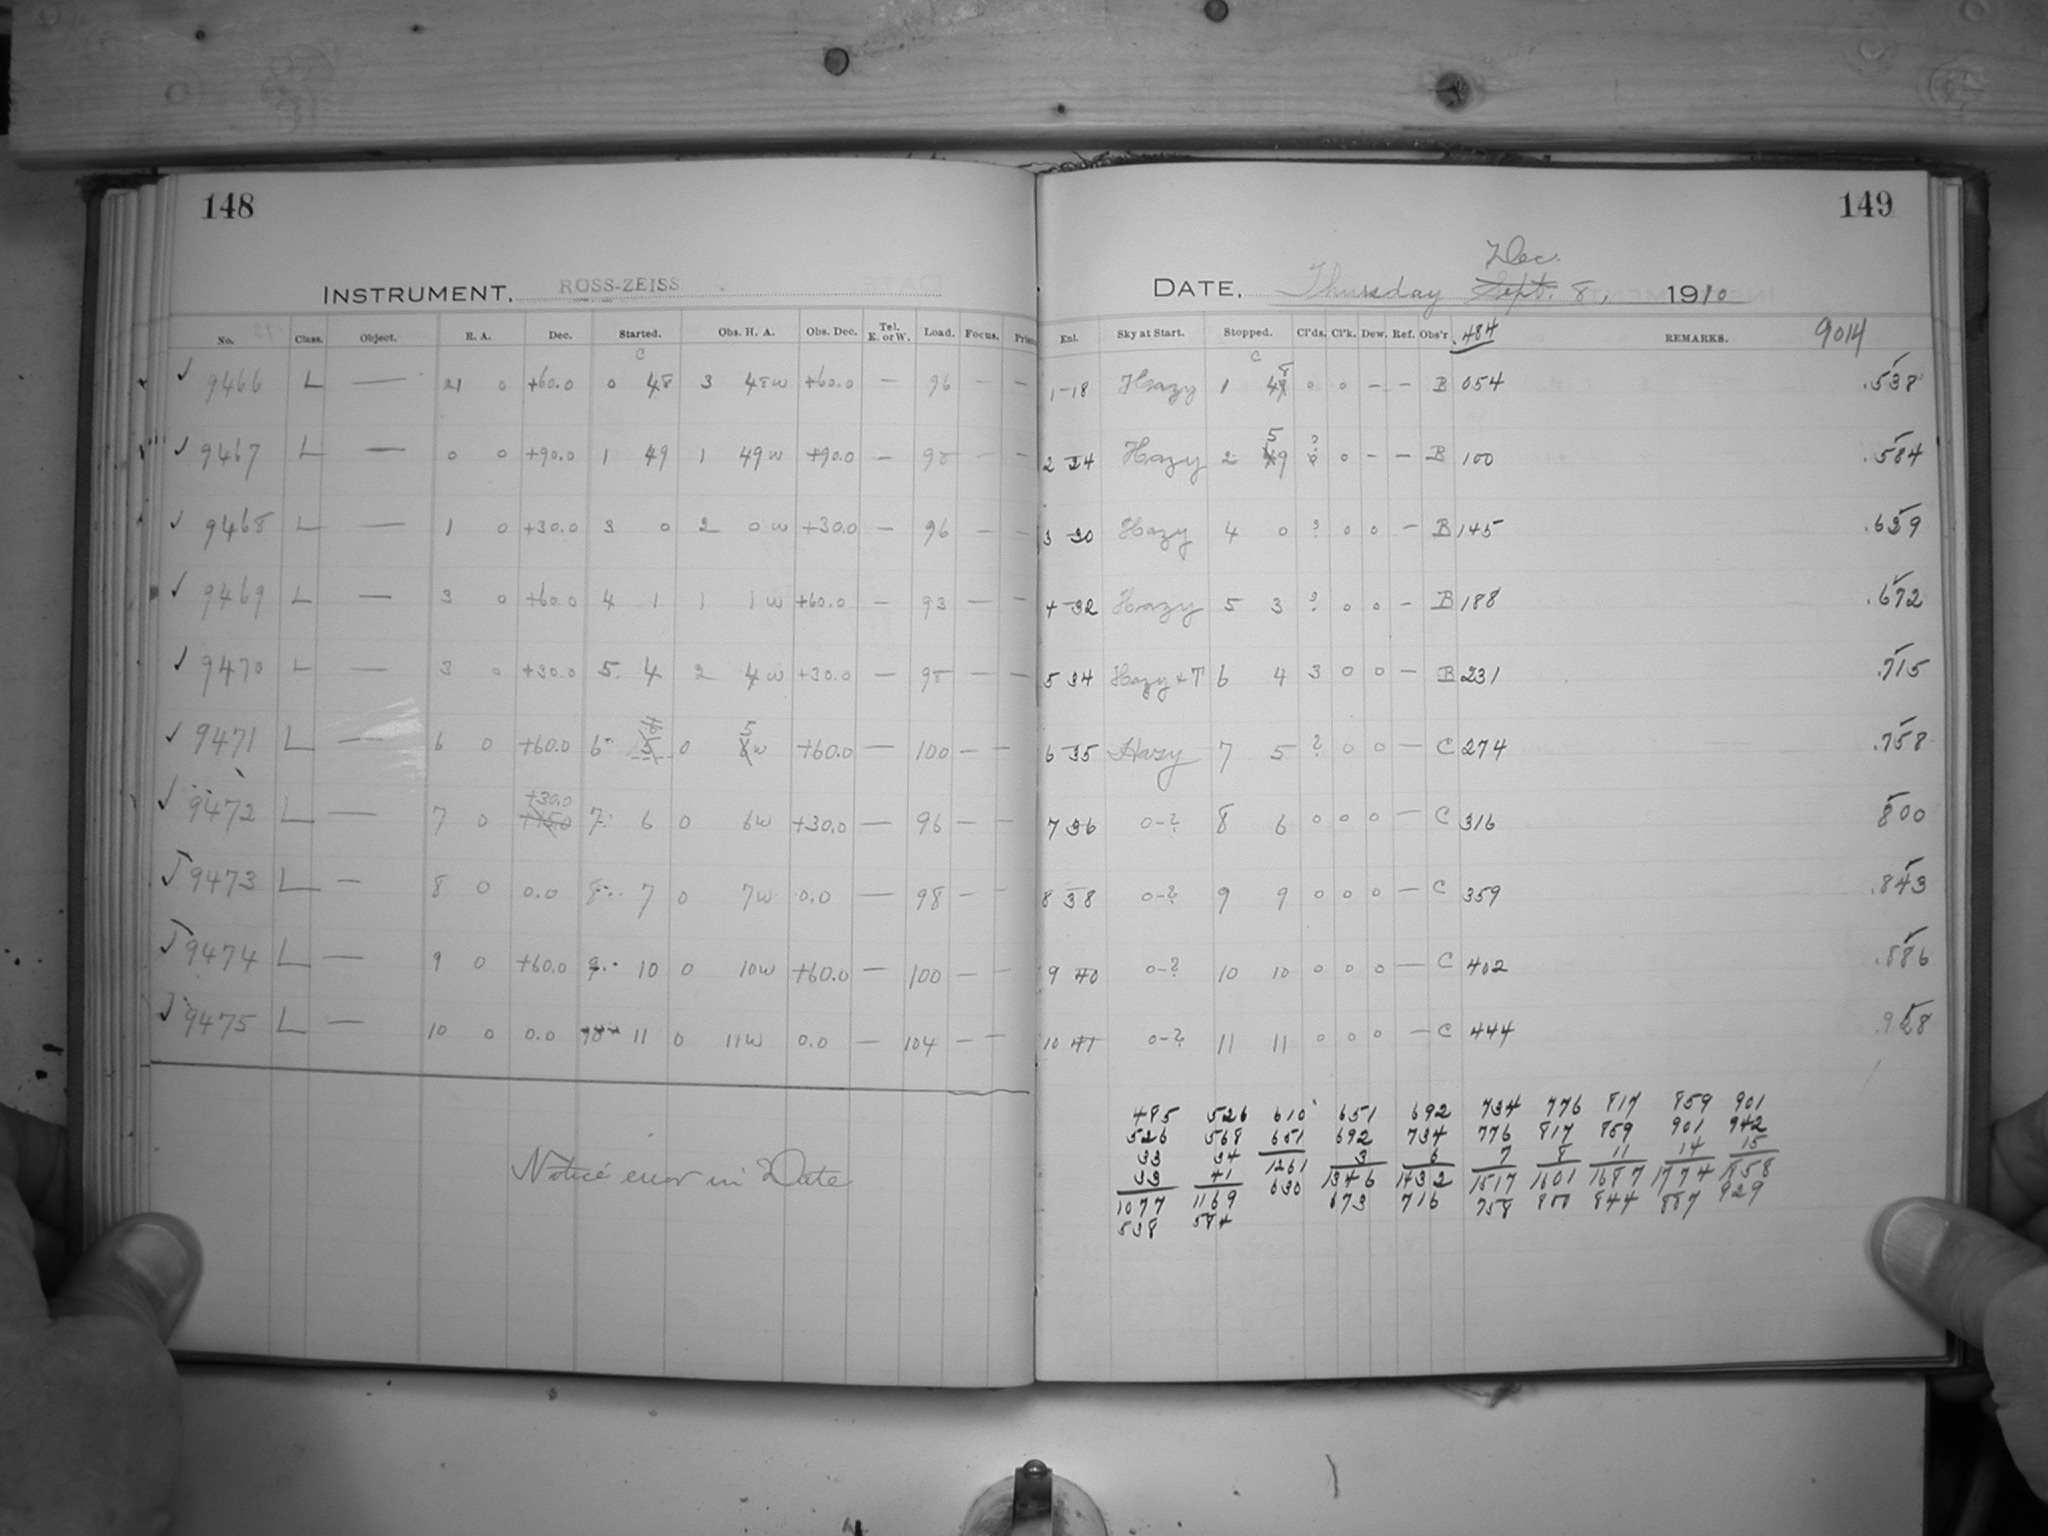 148
INSTRUMENT, ROSS-ZEISS
No. Class. Object. R. A. Dec. Started. Obs. H. A. Obs. Dec. Tel. E. or W. Load. Focus.
9466 L — 21 0 +60.0 0 48 3 48w +60.0 — 96 — —
9467 L — 0 0 +90.0 1 49 1 49w +90.0 — 98 — —
9468 L — 1 0 +30.0 3 0 2 0w +30.0 — 96 — —
9469 L — 3 0 +60.0 4 1 1 1w +60.0 — 93 — —
9470 L — 3 0 +30.0 5 4 2 4w +30.0 — 98 — —
9471 L — 6 0 +60.0 6 5 0 5w +60.0 — 100 — —
9472 L — 7 0 +30.0 7 6 0 6w +30.0 — 96 — —
9473 L — 8 0 0.0 8 7 0 7w 0.0 — 98 — —
9474 L — 9 0 +60.0 9 10 0 10w +60.0 — 100 — —
9475 L — 10 0 0.0 10 11 0 11w 0.0 — 104 — —
Notice error in Date
149
Dec.
DATE, Thursday Sept. 8, 1910
Enl. Sky at Start. Stopped. Cl'ds. Cl'k. Dew. Ref. Obs'r .484 REMARKS. 9014
1-18 Hazy 1 48 0 0 — — B 054 .538
2 24 Hazy 2 59 ? 0 — — B 100 .584
3 30 Hazy 4 0 ? 0 0 — B 145 .629
4 32 Hazy 5 3 ? 0 0 — B 188 .672
5 34 Hazy + T 6 4 3 0 0 — B 231 .715
6 35 Hazy 7 5 ? 0 0 — C 274 .758
7 36 0-? 8 6 0 0 0 — C 316 800
8 38 0-? 9 9 0 0 0 — C 359 .843
9 40 0-? 10 10 0 0 0 — C 402 .886
10 41 0-? 11 11 0 0 0 — C 444 .928
485 526 610 651 692 734 776 817 859 901
526 568 651 692 734 776 817 859 901 942
33 34 1261 3 6 7 8 11 14 15
33 41 630 1346 1432 1517 1601 1687 1774 1858
1077 1169 673 716 758 800 844 887 929
538 584